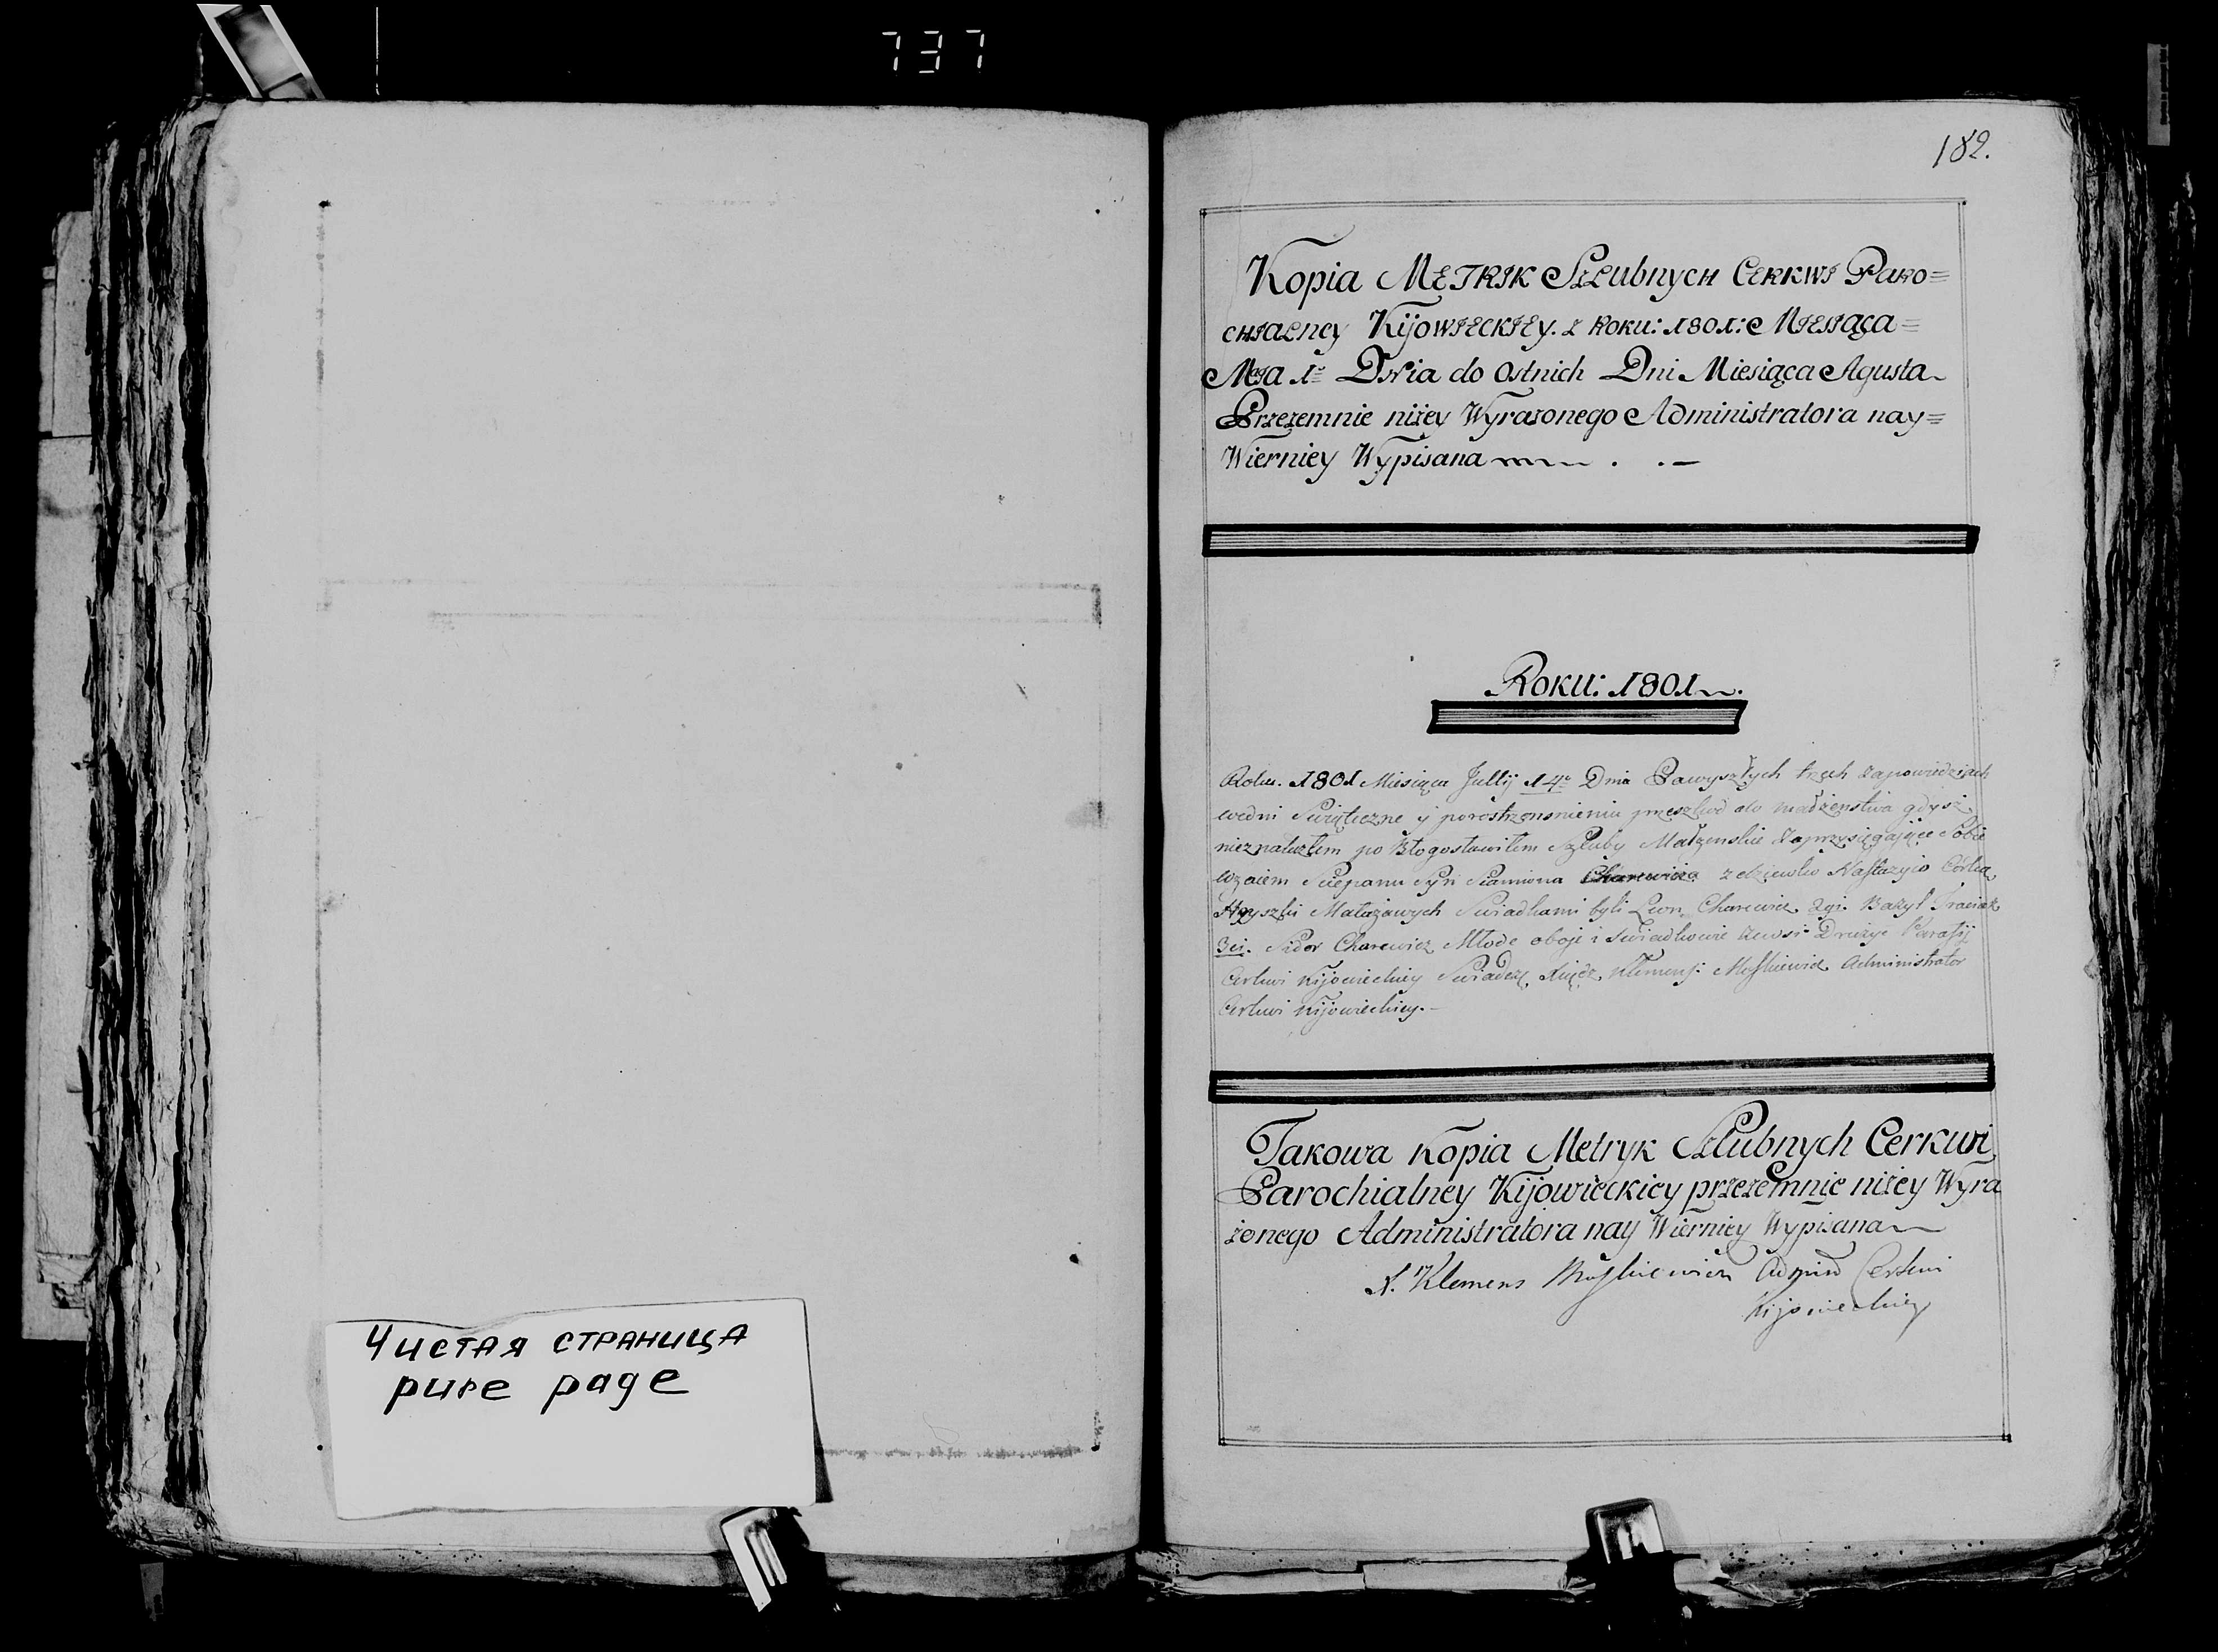 737
Чистая страница
pure page
182.
Kopia Metrik Szlubnych Cerkwi Paro=
chialney Kijowieckiey. z Roku: 1801: Miesiąca=
Maja 1= Dnia do Ostnich Dni Miesiąca Agusta
Przezemnie niżey Wyrażonego Administratora nay=
Wierniey Wypisana
Roku: 1801.
Roku. 1801 Miesiąca Jullij 14= Dnia Pawyszłych trzech Zapowiedziach
wedni Swiąteczne y przeszkod do małżenstwa gdysz
nieznalazłem po Błogosławiłem Szluby Małżenskie Zaprzysięgające Sobie
wzaiem Sciepanu Syn Siamiona Charewicza z dziewko Nastazyio Corką
Hryszki Świadkami byli Leon Charewicz 2gi. Bazyl
3ci. Sidor Charewicz Młode oboje i Swiadkowie Parafij
Cerkwi Kijowieckiey Swiadczę Xiądz Klemens: Moszkiewicz Administrator
Cerkwi Kijowieckiey.
Takowa Kopia Metryk Szlubnych Cerkwi
Parochialney Kijowieckiey przezemnie niżey Wyra
żonego Administratora nay Wierniey Wypisana
X. Klemens Moszkiewicz Admin Cerkwi
Kijowieckiey